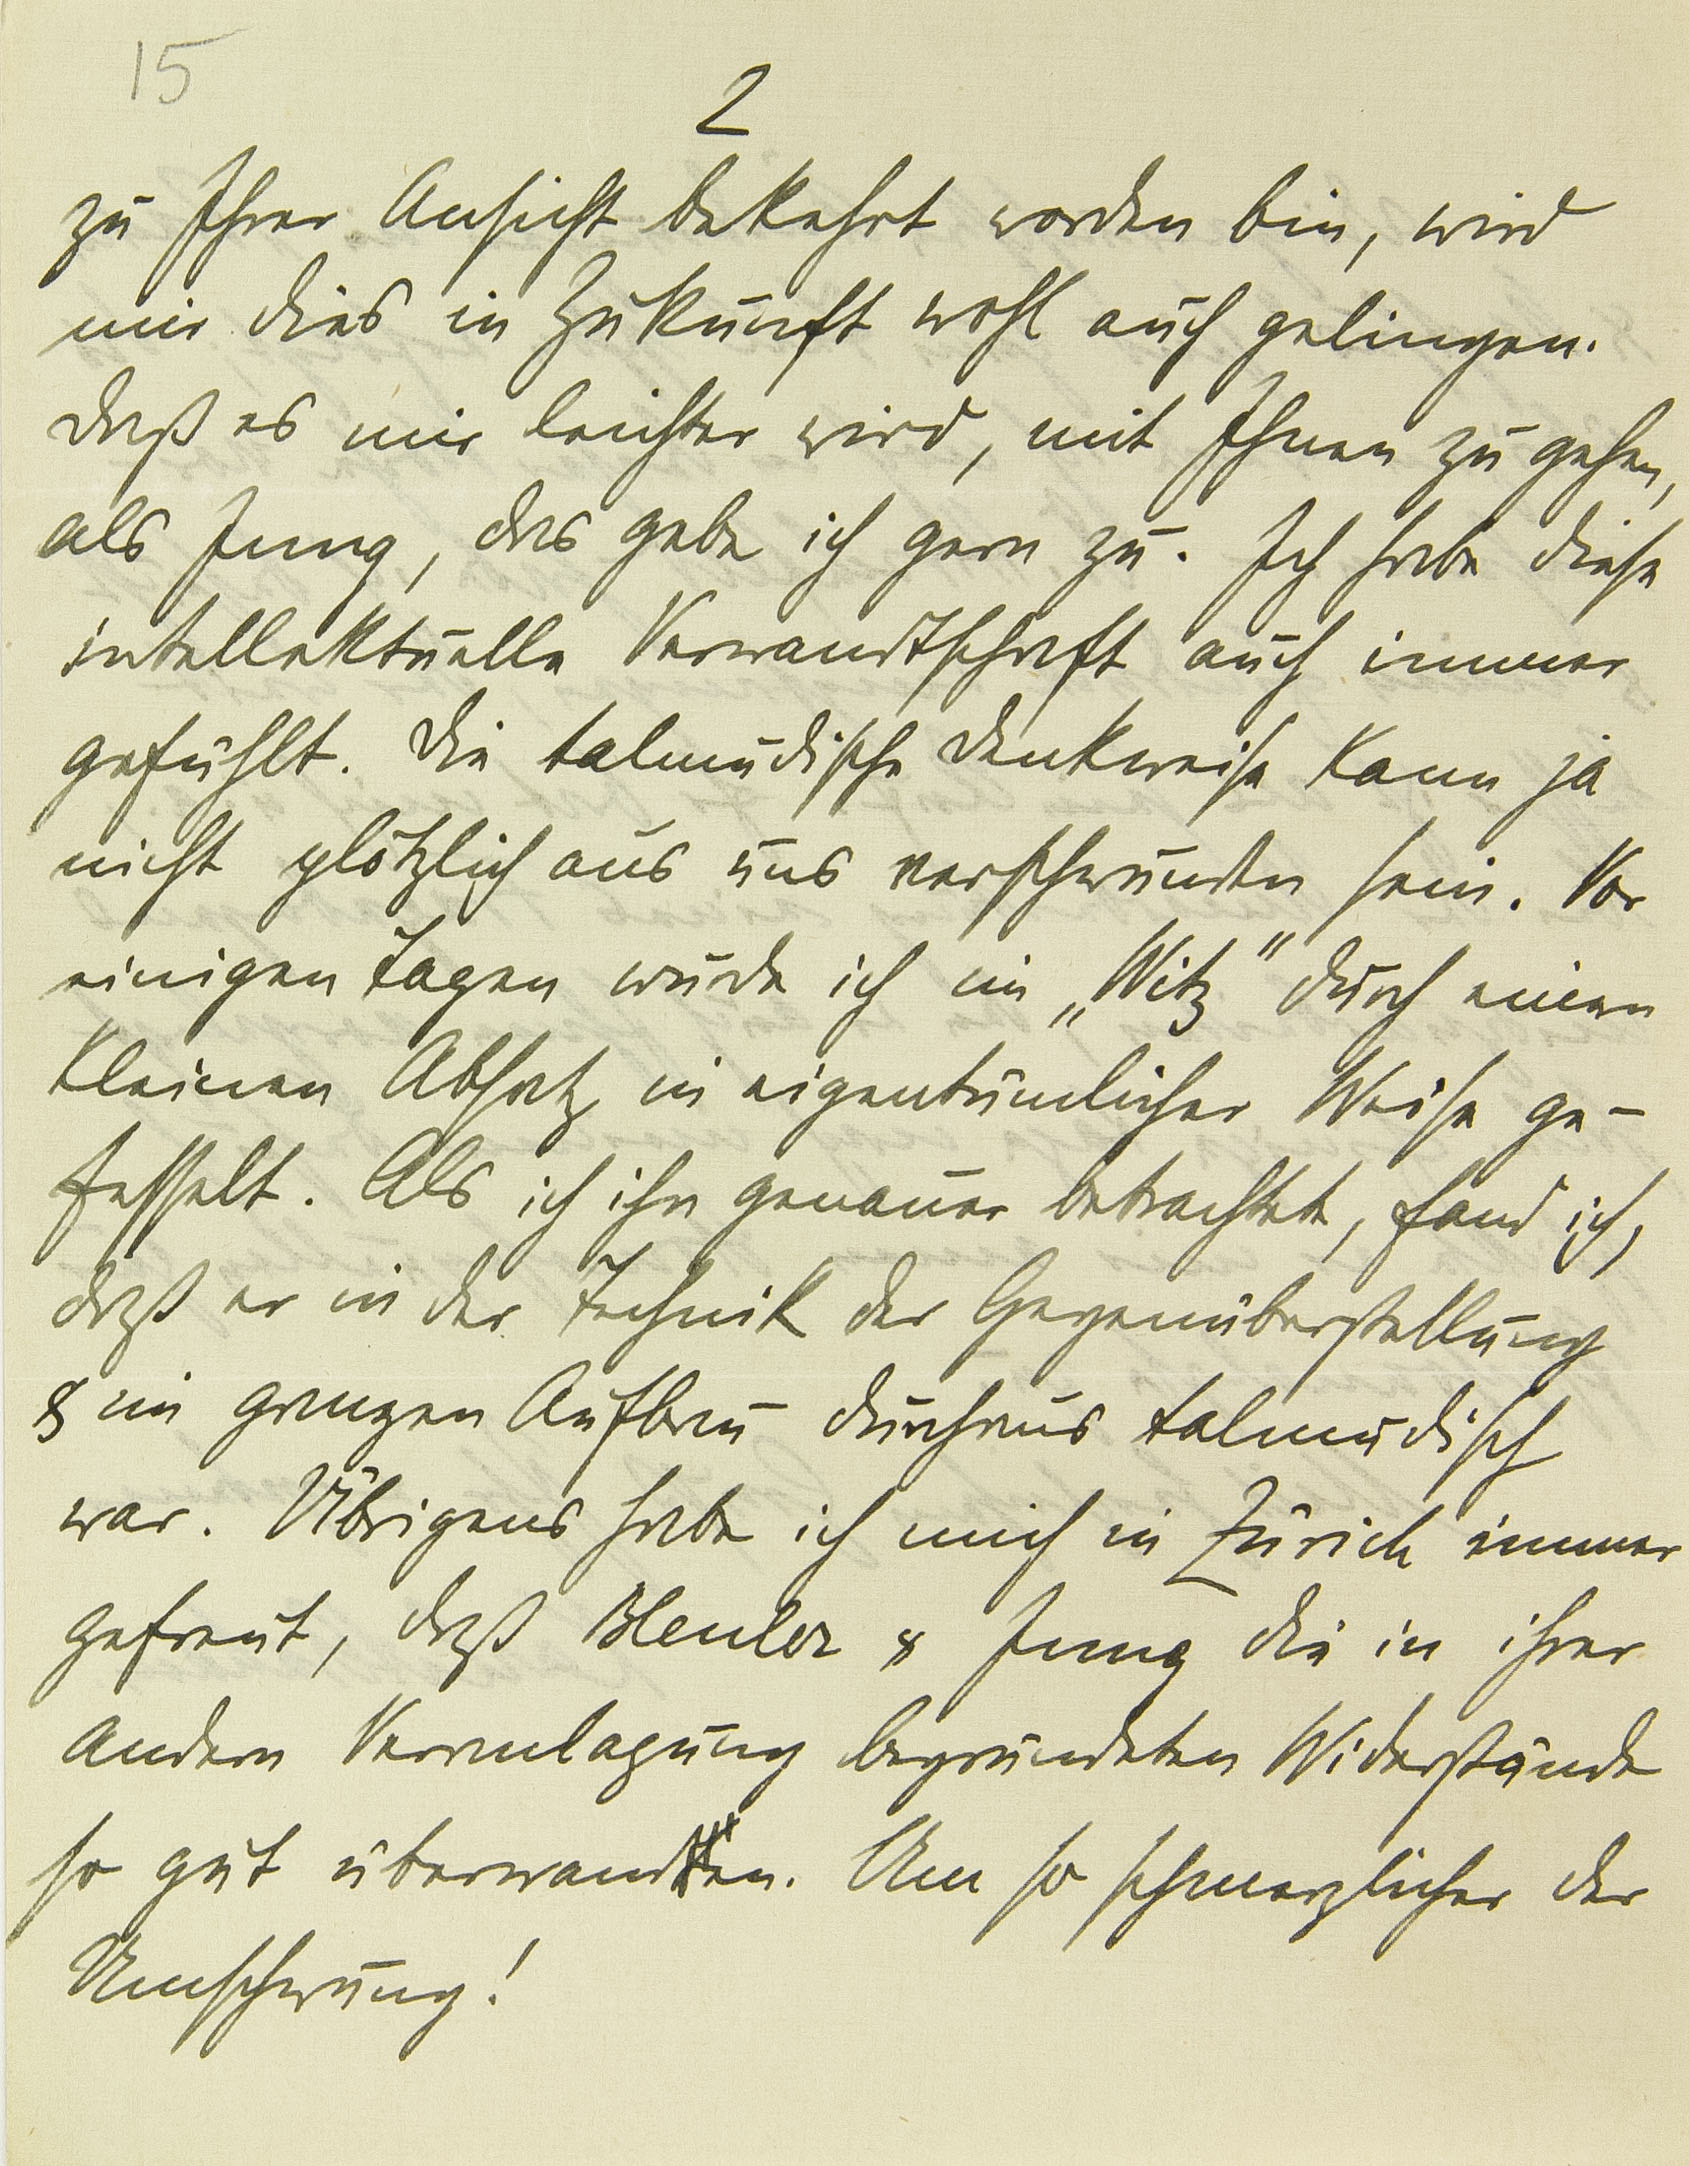 15
2
zu Ihrer Ansicht bekehrt worden bin, wird
mir dies in Zukunft wohl auch gelingen.
Daß es mir leichter wird, mit Ihnen zu gehen,
als Jung, das gebe ich gern zu. Ich habe diese
intellektuelle Verwandtschaft auch immer
gefühlt. Die talmudische Denkweise kann ja
nicht plötzlich aus uns verschwunden sein. Vor
einigen Tagen wurde ich im „Witz" durch einen
kleinen Absatz in eigentümlicher Weise ge-
fesselt. Als ich ihn genauer betrachtete, fand ich,
daß er in der Technik der Gegenüberstellung
& im ganzen Aufbau durchaus talmudisch
war. Übrigens habe ich mich in Zürich immer
gefreut, daß Bleuler & Jung die in ihrer
andern Veranlagung begründeten Widerstände
so gut überwanden. Um so schmerzlicher der
Umschwung!